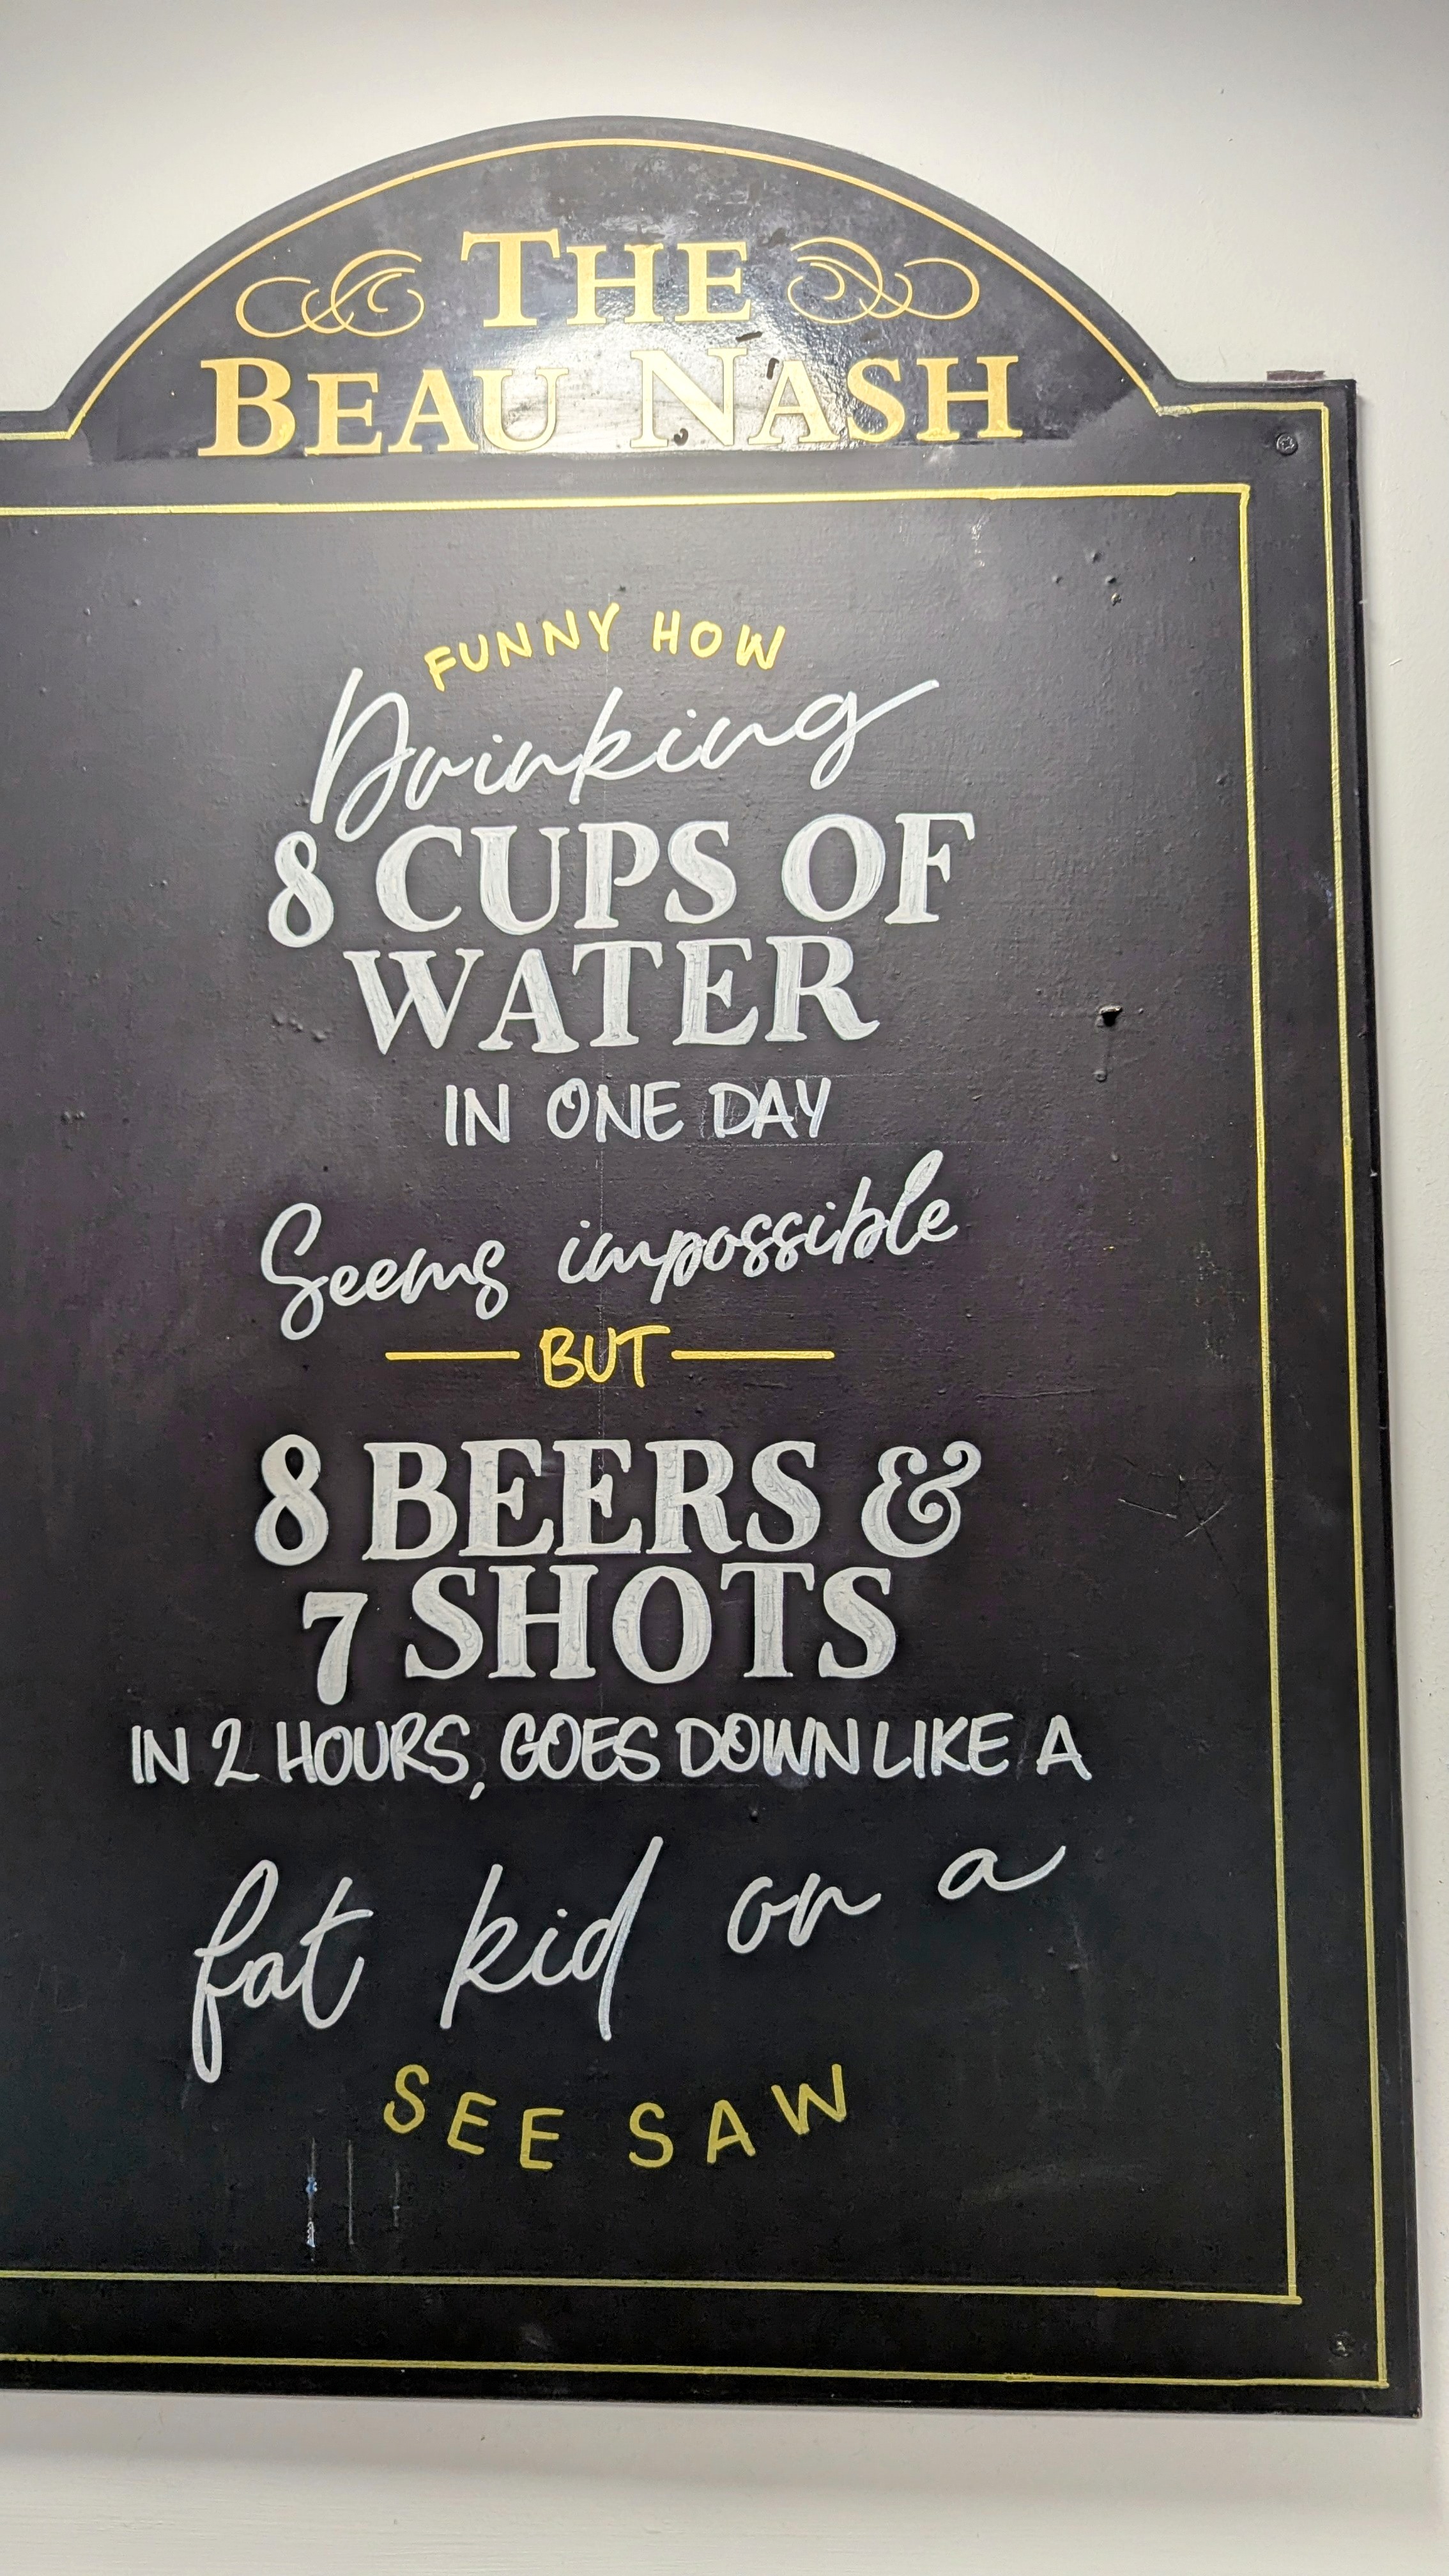 THE
BEAU NASH
FUNNY HOW
Drinking
8 CUPS OF
WATER
IN ONE DAY
Seems impossible
BUT
8 BEERS &
7 SHOTS
IN 2 HOURS, GOES DOWN LIKE A
fat kid on a
SEE SAW